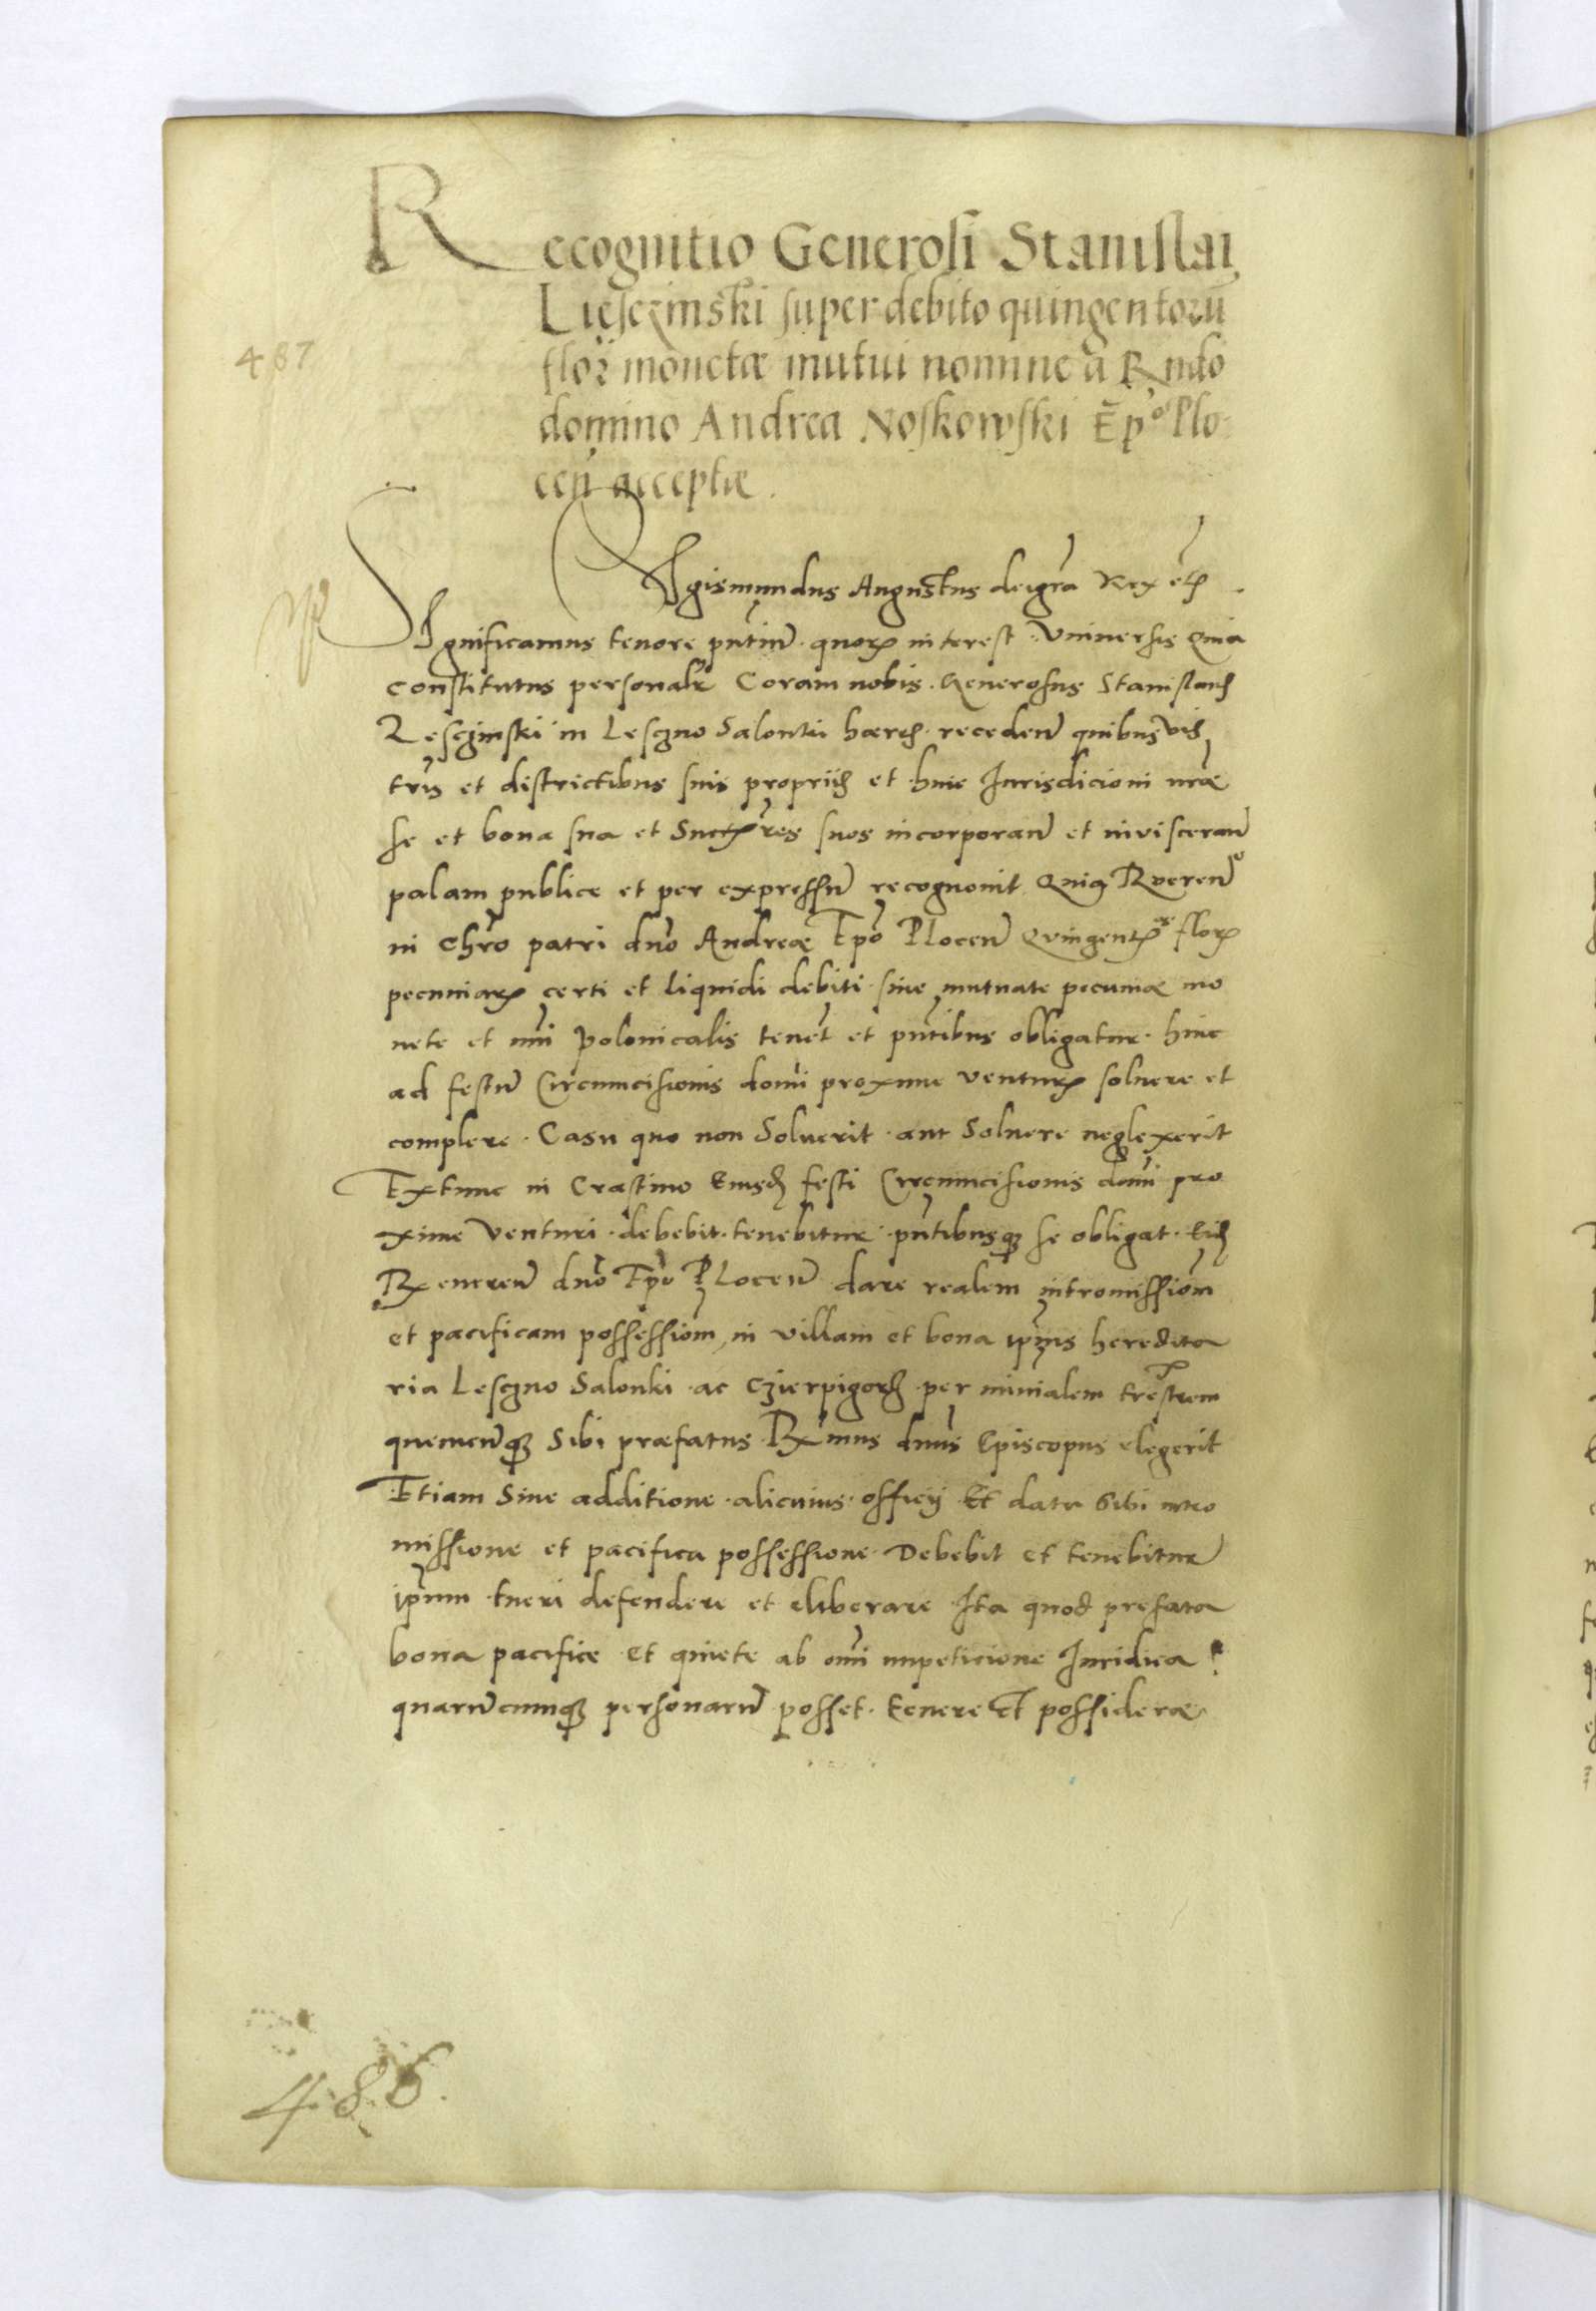 Recognitio Generosi Stanislai
Liesczinski super debito quingentorū
flor monetæ mutui nomine a Rndo
487
domino Andrea Noskowski Ep̄o Plo-
ceń acceptæ.
Sigismundus Augustus dei gr̄a Rex etc̄
Significamus tenore pn̄tium quorꝝ interest Vniversis Quia
constitutus personalr Coram nobis Generosus Stanislaus
Lesczinski in Lesczno Salonki hæres recedeń quibusvis
tris et districtibus suis propriis et huic Iurisdicioni nr̄æ
se et bona sua et Succ̄res suos incorporań et inviscerań
palam publice et per expressū recognovit Quia Rvereń
in Chr̄o patri dn̄o Andreæ Ep̄o Ploceń Qvingentos florꝝ
pecuniarꝝ certi et liquidi debiti sive mutuate pecuniæ mo
nete et nu̅i Polonicalis tenet̄ et pn̄tibus obligatur hinc
ad festū Circumcisionis domi̅ proxime venturꝝ solvere et
complere. Casu quo non Solverit aut Solvere neglexerit
Extunc in Crastino Eiusdꝫ festi Circumcisionis domi̅ pro
xime Venturi debebit tenebitur pn̄tibusqꝫ se obligat Eidꝫ
Revereń dn̄o Ep̄o Ploceń dare realem intromissiom̄
et pacificam possessiom̄ in villam et bona ip̄ius heredita
ria Lesczno Salonki ac Czierpigorz per minialem trestrem
quemcūqꝫ Sibi præfatus Rx̄mus dn̄us Episcopus elegerit
Etiam Sine additione alicuius officij Et data Sibi intro
missione et pacifica possessione Debebit et tenebitur
ip̄um tueri defendere et eliberare Ita quod prefata
bona pacifice et quiete ab om̄i impeticione Iuridica
quarūcumqꝫ personarū posset tenere Et possideræ
486.